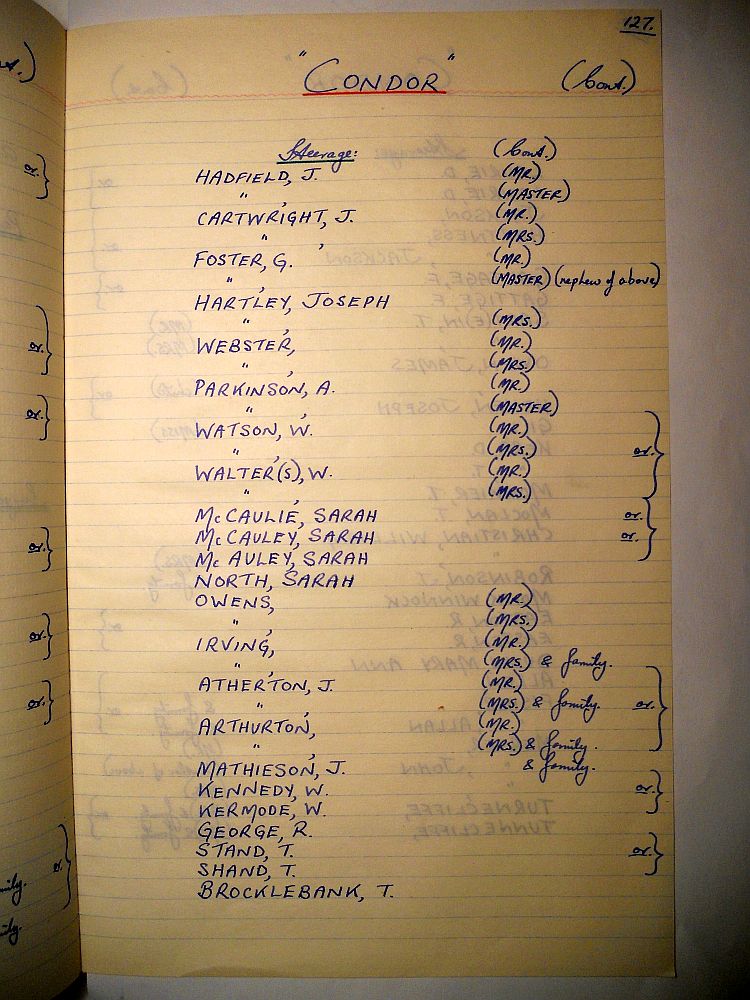 127.
"CONDOR" (Cont.)
Steerage: (Cont.)
HADFIELD, J. (MR.)
" , (MASTER)
CARTWRIGHT, J. (MR.)
" , (MRS.)
FOSTER, G. (MR.)
" , (MASTER) (nephew of above)
HARTLEY, JOSEPH
" , (MRS.)
WEBSTER, (MR.)
" , (MRS.)
PARKINSON, A. (MR.)
" , (MASTER)
WATSON, W. (MR.)
" , (MRS.) or.
WALTER(S), W. (MR.)
" , (MRS.)
McCAULIE, SARAH or.
McCAULEY, SARAH or.
McAULEY, SARAH
NORTH, SARAH
OWENS, (MR.)
" , (MRS.)
IRVING, (MR.)
" , (MRS.) & family.
ATHERTON, J. (MR.)
" , (MRS.) & family. or.
ARTHURTON, (MR.)
" , (MRS.) & family.
MATHIESON, J. & family.
KENNEDY, W. or.
KERMODE, W.
GEORGE, R.
STAND, T. or.
SHAND, T.
BROCKLEBANK, T.